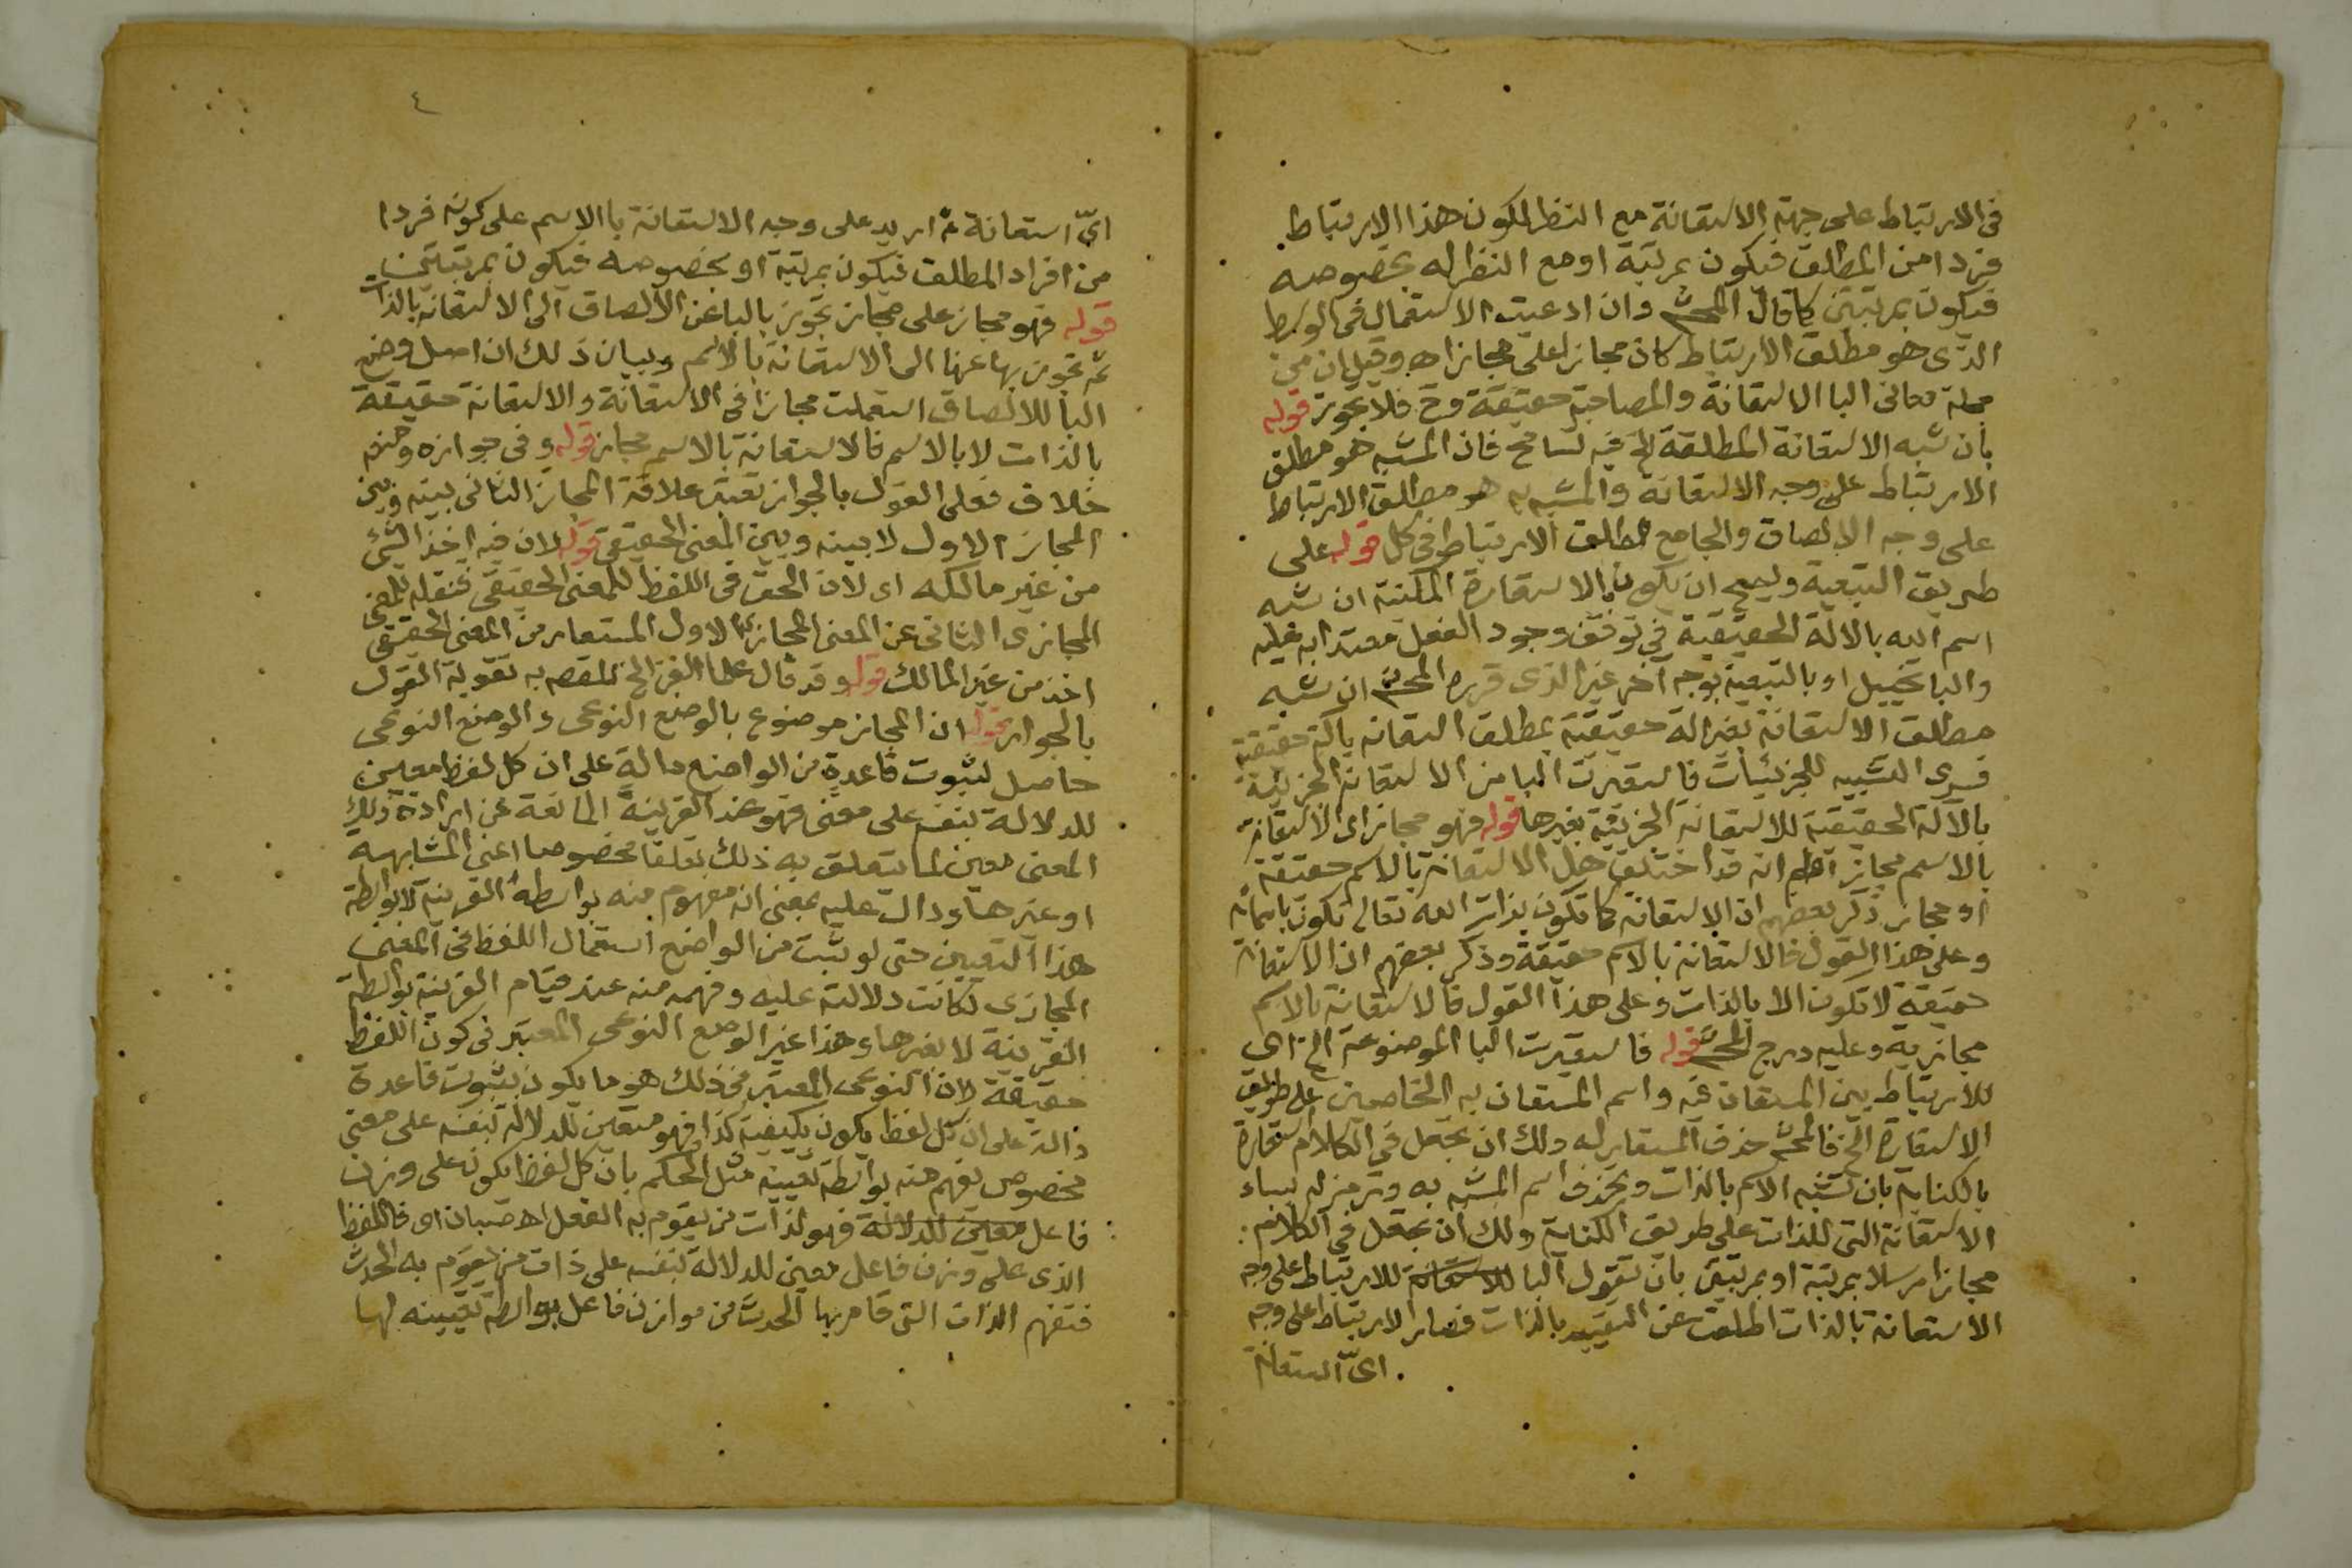 فى الارتباط على جهة الاستعانة مع النظر لكون هذا الارتباط
فردا من المطلق فيكون بمرتبة او مع النظر له بخصوصه
فيكون بمرتبتين كما قال المحشى وان ادعيت الاستعمال فى الوسط
الذى هو مطلق الارتباط كان مجازا على مجاز اه وقيل ان من
جملة معانى البا الاستعانة والمصاحبة حقيقة وح فلا تجوز قوله
بان شبه الاستعانة المطلقة الخ فيه تسامح فان المشبه هو مطلق
الارتباط على وجه الاستعانة والمشبه به هو مطلق الارتباط
على وجه الالصاق والجامع مطلق الارتباط فى كل قوله على
طريق التبعية ويصح ان يكون بالاستعارة المكنية ان شبه
اسم الله بالالة الحقيقية فى توقف وجود الفعل معتدا به عليه
والبا تخييل او بالتبعية بوجه آخر غير الذى قرره المحشى ان شبه
مطلق الاستعانة بغير الة حقيقية بمطلق استعانة بالة حقيقية
فسرى التشبيه للجزئيات فاستعيرت البا من الاستعانة الجزئية
بالآلة الحقيقية للاستعانة الجزئية بغيرها قوله فهو مجاز اى الاستعانة
بالاسم مجاز اعلم انه قد اختلف هل الاستعانة بالاسم حقيقة
او مجاز ذكر بعضهم ان الاستعانة كما تكون بذات الله تعالى تكون باسمائه
وعلى هذا القول فالاستعانة بالاسم حقيقة وذكر بعضهم ان الاستعانة
حقيقة لا تكون الا بالذات وعلى هذا القول فالاستعانة بالاسم
مجازية وعليه درج المحشى قوله فاستعيرت البا الموضوعة الخ اى
للارتباط بين المستعان فيه واسم المستعان به الخاصين على طريق
الاستعارة الخ فالمحشى حذف المستعار له ولك ان تجعل فى الكلام استعارة
بالكناية بان تشبه الاسم بالذات ويحذف اسم المشبه به وترمز له بباء
الاستعانة التى للذات على طريق الكناية ولك ان تجعل فى الكلام
مجازا مرسلا بمرتبة او بمرتبتين بان تقول البا للاستعانة للارتباط على وجه
الاستعانة بالذات اطلقت عن التقييد بالذات فصار الارتباط على وجه
اىّ استعانة
٤
اىّ استعانة ثم اريد على وجه الاستعانة با الاسم على كونه فردا
من افراد المطلق فيكون بمرتبة او بخصوصه فيكون بمرتبتين
قوله فهو مجاز على مجاز تجوز بالبا عن الالصاق الى الاستعانة بالذات
ثم تجوز بها عنها الى الاستعانة بالاسم وبيان ذلك ان اصل وضع
البا للالصاق استعملت مجازا فى الاستعانة والاستعانة حقيقة
بالذات لا بالاسم فالاستعانة بالاسم مجاز قوله وفى جوازه ومنعه
خلاف فعلى القول بالجواز تعتبر علاقة المجاز الثانى بينه وبين
المجاز الاول لا بينه وبين المعنى الحقيقى قوله لان فيه اخذ الشئ
من غير مالكه اى لان الحق فى اللفظ للمعنى الحقيقى فنقله للمعنى
المجازى الثانى عن المعنى المجازى الاول المستعار من المعنى الحقيقى
اخذ من غير المالك قوله وقد قال علما الفن الخ القصد به تقوية القول
بالجواز قوله ان المجاز موضوع بالوضع النوعى والوضع النوعى
حاصل لثبوت قاعدة من الواضع دالة على ان كل لفظ معين
للدلالة بنفسه على معنى فهو عند القرينة المانعة عن ارادة ذلك
المعنى معين لما يتعلق به ذلك تعلقا مخصوصا اعنى المشابهة
او غيرها ودال عليه بمعنى انه مفهوم منه بواسطة القرينة لا بواسطة
هذا التعيين حتى لو ثبت من الواضع استعمال اللفظ فى المعنى
المجازى لكانت دلالته عليه وفهمه منه عند قيام القرينة بواسطة
القرينة لا بغيرها وهذا غير الوضع النوعى المعتبر فى كون اللفظ
حقيقة لان النوعى المعتبر فى ذلك هو ما يكون بثبوت قاعدة
دالة على ان كل لفظ يكون بكيفية كذا فهو متعين للدلالة بنفسه على معنى
مخصوص يفهم منه بواسطة تعيينه مثل الحكم بان كل لفظ يكون على وزن
فاعل معين للدلالة فهو لذات من يقوم به الفعل اه صبان اى فاللفظ
الذى على وزن فاعل معين للدلالة بنفسه على ذات من يقوم به الحدث
فتفهم الذات التى قام بها الحدث من موازن فاعل بواسطة تعيينه لها